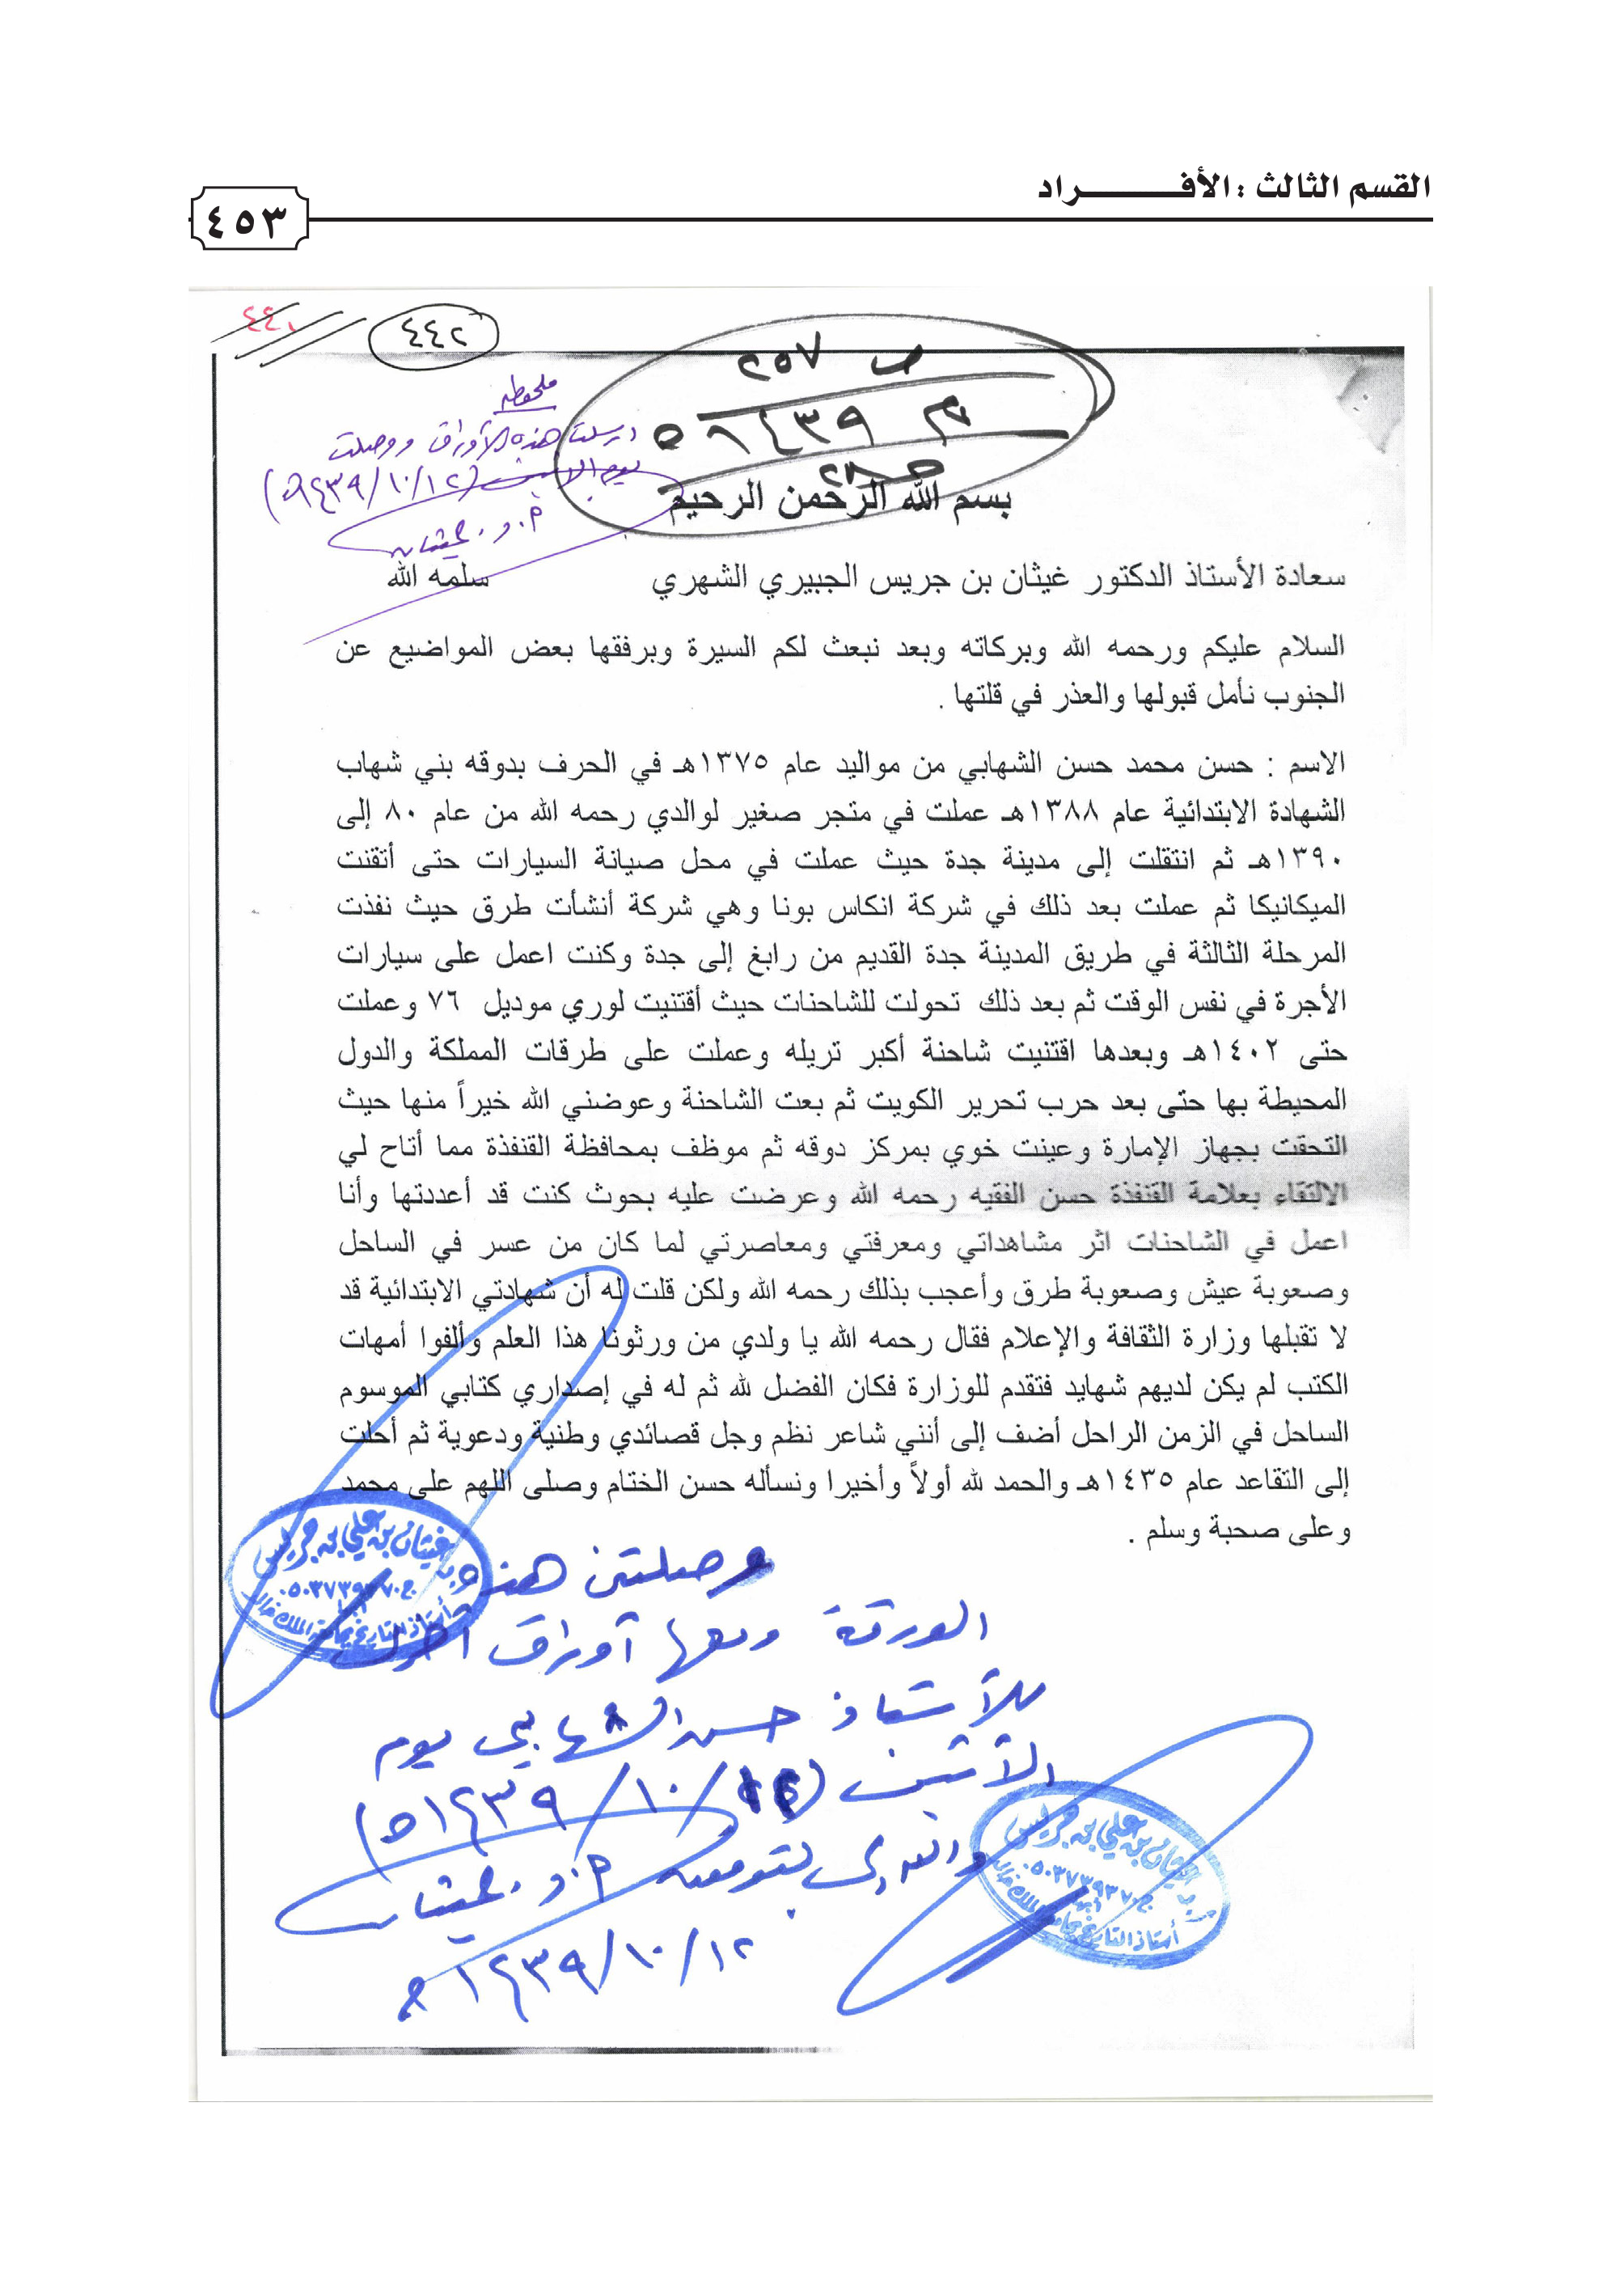 القسم الثالث : الأفـــــــــراد
٤٥٣
٤٤١
٤٤٢
ص ٢٥٧
م ١٤٣٩ هـ
ملحوظه
ارسلت هذه الأوراق ووصلت
يوم الاثنين (١٤٣٩/١٠/١٢هـ)
أ.د. غيثان
بسم الله الرحمن الرحيم
سعادة الأستاذ الدكتور غيثان بن جريس الجبيري الشهري سلمه الله
السلام عليكم ورحمه الله وبركاته وبعد نبعث لكم السيرة وبرفقها بعض المواضيع عن
الجنوب نأمل قبولها والعذر في قلتها .
الاسم : حسن محمد حسن الشهابي من مواليد عام ١٣٧٥هـ في الحرف بدوقه بني شهاب
الشهادة الابتدائية عام ١٣٨٨هـ عملت في متجر صغير لوالدي رحمه الله من عام ٨٠ إلى
١٣٩٠هـ ثم انتقلت إلى مدينة جدة حيث عملت في محل صيانة السيارات حتى أتقنت
الميكانيكا ثم عملت بعد ذلك في شركة انكاس بونا وهي شركة أنشأت طرق حيث نفذت
المرحلة الثالثة في طريق المدينة جدة القديم من رابغ إلى جدة وكنت اعمل على سيارات
الأجرة في نفس الوقت ثم بعد ذلك تحولت للشاحنات حيث أقتنيت لوري موديل ٧٦ وعملت
حتى ١٤٠٢هـ وبعدها اقتنيت شاحنة أكبر تريله وعملت على طرقات المملكة والدول
المحيطة بها حتى بعد حرب تحرير الكويت ثم بعت الشاحنة وعوضني الله خيراً منها حيث
التحقت بجهاز الإمارة وعينت خوي بمركز دوقه ثم موظف بمحافظة القنفذة مما أتاح لي
الالتقاء بعلامة القنفذة حسن الفقيه رحمه الله وعرضت عليه بحوث كنت قد أعددتها وأنا
اعمل في الشاحنات اثر مشاهداتي ومعرفتي ومعاصرتي لما كان من عسر في الساحل
وصعوبة عيش وصعوبة طرق وأعجب بذلك رحمه الله ولكن قلت له أن شهادتي الابتدائية قد
لا تقبلها وزارة الثقافة والإعلام فقال رحمه الله يا ولدي من ورثونا هذا العلم وألفوا أمهات
الكتب لم يكن لديهم شهايد فتقدم للوزارة فكان الفضل لله ثم له في إصداري كتابي الموسوم
الساحل في الزمن الراحل أضف إلى أنني شاعر نظم وجل قصائدي وطنية ودعوية ثم أحلت
إلى التقاعد عام ١٤٣٥هـ والحمد لله أولاً وأخيرا ونسأله حسن الختام وصلى اللهم على محمد
وعلى صحبة وسلم .
وصلتني هذه
الورقة ومعها أوراق أخرى
للأستاذ حسن الشهابي يوم
الاثنين (١٢/١٠/١٤٣٩هـ)
أ.د. غيثان
١٤٣٩/١٠/١٢هـ
غيثان بن علي بن جريس
ج ٠٥٠٣٧٣٩٣٧٠
أبها
أستاذ التاريخ بجامعة الملك خالد
غيثان بن علي بن جريس
ج ٠٥٠٣٧٣٩٣٧٠
أبها
أستاذ التاريخ بجامعة الملك خالد